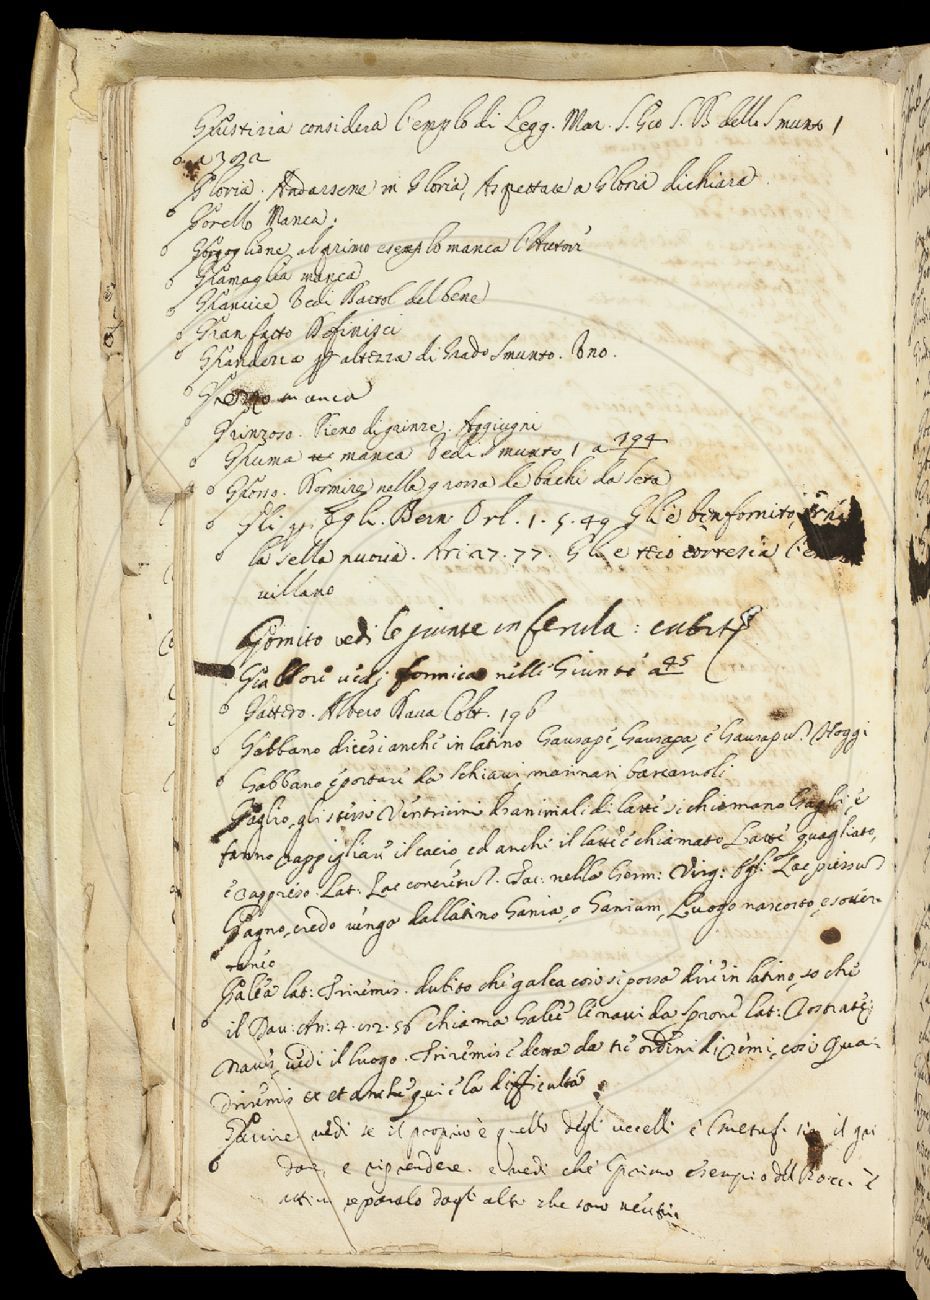 Giustizia considera l'emplo di Legg. Mar. S. Gio S. B dello Smunto 1
a 392
Gloria. Andarsene in Gloria, Aspettare a Gloria dichiara
Gorello Manca.
Gorgoglione al primo esemplo manca l'Autore
Gramaglia manca
Grancire Vedi Bartol del bene
Gran fatto Definisci
Grandezza per altezza di Grado Smunto. Uno.
manca
Grinzoso. Pieno di grinze. Aggiugni
Gruma manca Vedi Smunto 1 a 194
Grosso. Dormire nella grossa de bachi da Seta
Gli per Egli. Bern Orl. 1. 5. 49 Gli è ben fornito,
la sella nuova. Ari 27. 77. Gli è cortesia
villano
Gomito vedi le giunte in ferula: cubito
vedi formica nelle Giunte a 45
Gattero. Albero Dava Colt. 196
Gabbano dicesi anche in latino Gausape, Gausapa, e Gausapus. Hoggi
Gabbano è portare da Schiavi marinari barcaruoli
Gaglio, gli stessi Ventricini d'animali di latte si chiamano Gagli, e
fanno rappigliare il cacio, ed anche il latte è chiamato Latte quagliato,
e rappreso. Lat: Lac concretus. Tac: nella Germ: Virg: Lac pressus
Gagno, credo venga dal latino Ganea, o Ganeum, Luogo nascosto, e sotter-
raneo
Galea lat: Triremis. dubito che galea così si possa dire in latino, so che
il Dav: An: 4. 56 chiama Galee le navi da sprone lat: Rostratae
naves, vedi il luogo. Triremis è detta da tre ordini di remi, così Qua-
driremis et anche qui è la difficultà
Garrire vedi se il proprio è quello degli uccelli e il metaf. sia il gri
dare, e riprendere. e vedi che il primo esempio del Bocc. è
attivo separalo dagli altri che sono neutri